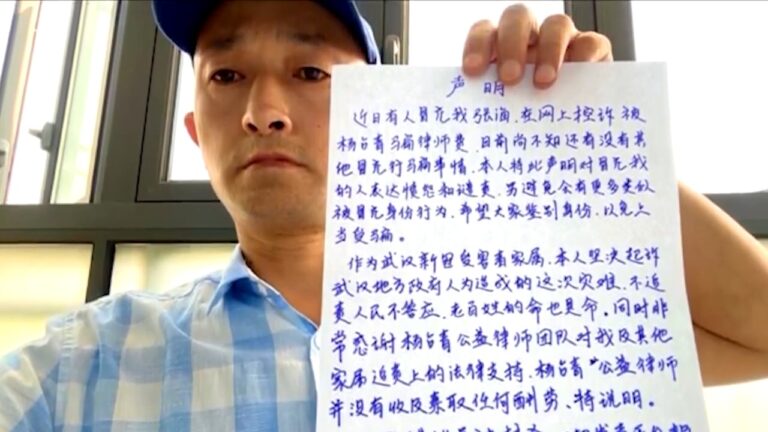 声 明
近日有人冒充我张海,在网上控诉被
杨占青骗律师费,目前尚不知还有没有其
他冒充行骗事情,本人特此声明对冒充我
的人表达愤怒和谴责,另避免会有更多类似
被冒充身份行为,希望大家鉴别身份,以免上
当受骗。
作为武汉新冠受害者家属,本人坚决起诉
武汉地方政府人为造成的这次灾难,不追
责人民不答应,老百姓的命也是命。同时非
常感谢杨占青公益律师团队对我及其他
家属追责上的法律支持,杨占青"公益律师
并没有收及索取任何酬劳、特说明。